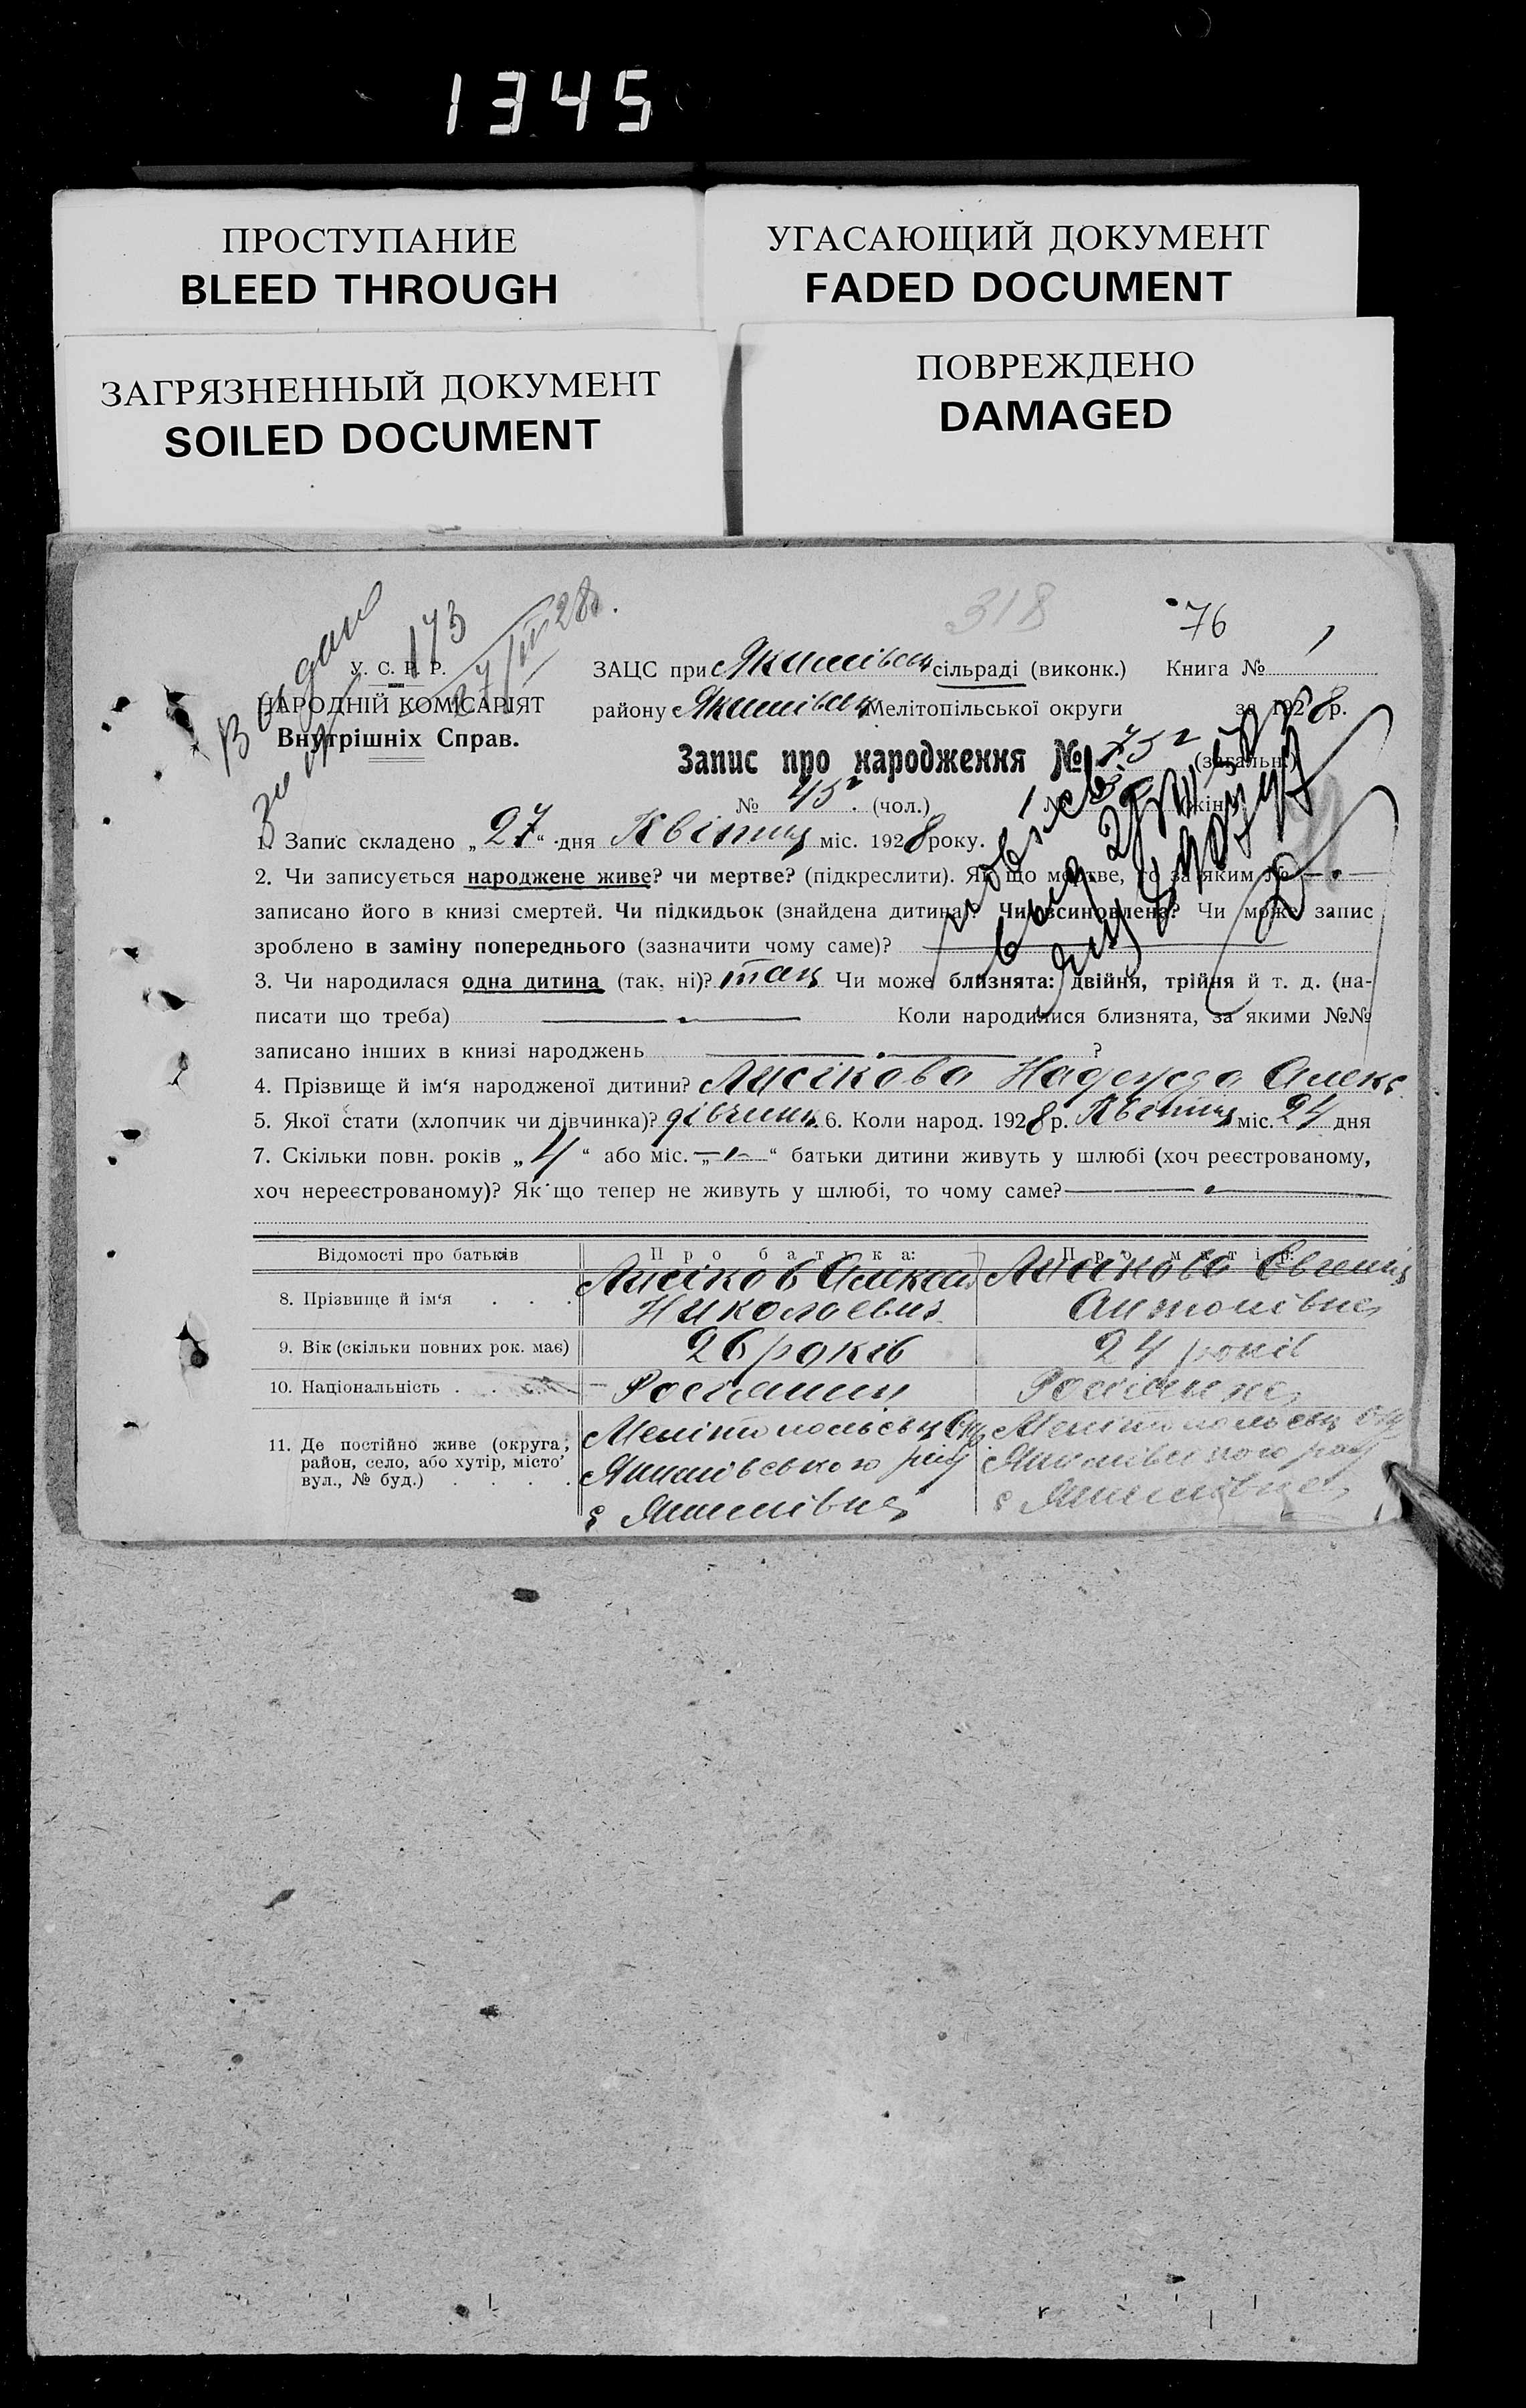 1345
ПРОСТУПАНИЕ
BLEED THROUGH
УГАСАЮЩИЙ ДОКУМЕНТ
FADED DOCUMENT
ЗАГРЯЗНЕННЫЙ ДОКУМЕНТ
SOILED DOCUMENT
ПОВРЕЖДЕНО
DAMAGED
318
76
173
27/III 28р.
У. С. Р. Р.
НАРОДНІЙ КОМІСАРІЯТ
Внутрішніх Справ.
ЗАЦС при Якимівськ сільраді (виконк.) Книга № 1
району Якимівськ Мелітопільської округи за 1928 р.
Запис про народження № (загальн.)
№ 45 (чол.) № (жін.)
1. Запис складено „27“ дня Квітня міс. 1928 року.
2. Чи записується народжене живе? чи мертве? (підкреслити). Як що мертве, то за яким № —
записано його в книзі смертей. Чи підкидьок (знайдена дитина)? Чи всиновлена? Чи може запис
зроблено в заміну попереднього (зазначити чому саме)?
3. Чи народилася одна дитина (так, ні)? так Чи може близнята: двійня, трійня й т. д. (на-
писати що треба) — Коли народилися близнята, за якими №№
записано інших в книзі народжень — ?
4. Прізвище й ім'я народженої дитини? Лисікова Надежда Алекс.
5. Якої стати (хлопчик чи дівчинка)? дівчинк. 6. Коли народ. 1928 р. Квітня міс. 24 дня
7. Скільки повн. років „4“ або міс. „—“ батьки дитини живуть у шлюбі (хоч реєстрованому,
хоч нереєстрованому)? Як що тепер не живуть у шлюбі, то чому саме? —
Відомості про батьків
Про батька:
Про матір:
8. Прізвище й ім'я . . .
Лисіков Алекса
Николаевич
Лисікова Євгенія
Антонівна
9. Вік (скільки повних рок. має)
26 років
24 років
10. Національність . . .
Росіянин
Росіянка
11. Де постійно живе (округа,
район, село, або хутір, місто
вул., № буд.) . . . .
Мелітопольськ Окр
Якимівського рай
с Якимівка
Мелітопольськ Окр
Якимівського рай
с Якимівка